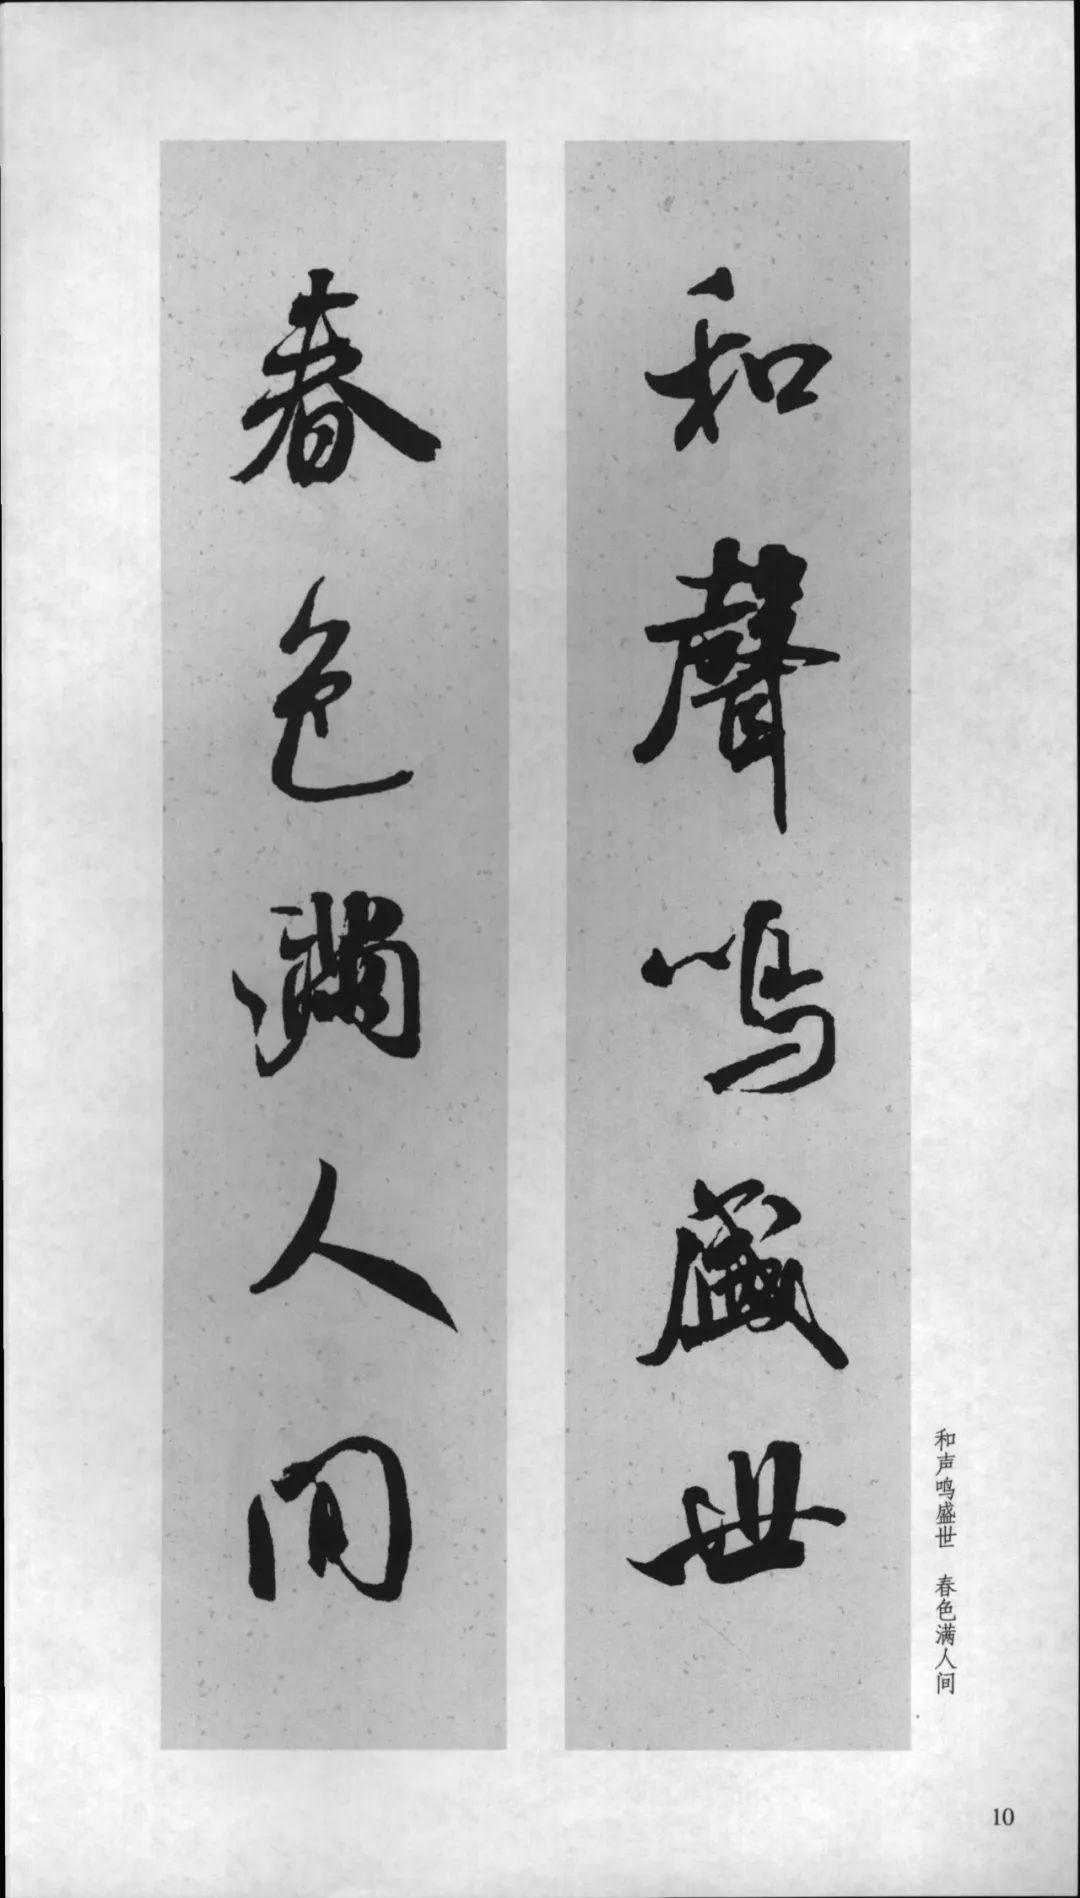 和聲鳴盛世
春色滿人间
和声鸣盛世　春色满人间
10